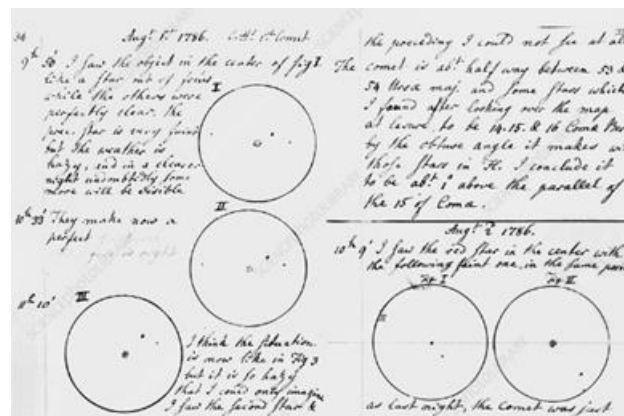 34 Augt. 1st. 1786. C.H. 1st. Comet
9h 50' I saw the object in the center of fig I
like a star out of focus
while the others were
perfectly clear. the
prec. star is very faint
but the weather is
hazy, and in a clearer
night undoubtedly some
more will be visible
I
II
10h 33' They make now a
perfect
11h 10'
III
I think the situation
is now like in Fig 3
but it is so hazy
that I could only imagine
I saw the second star &
the preceding I could not see at all
The comet is abt. half way between 53 &
54 Ursæ maj. and some stars which
I found after looking over the map
at leisure, to be 14. 15. & 16 Coma Ber
by the obtuse angle it makes wi
those stars in I conclude it
to be abt. 1° above the parallel of
the 15 of Coma.
Augt. 2 1786.
10h 9' I saw the red star in the center with
the following faint one, in the same
Fig I
Fig II
as last night, the Comet was just
SCIENCE PHOTO LIBRARY